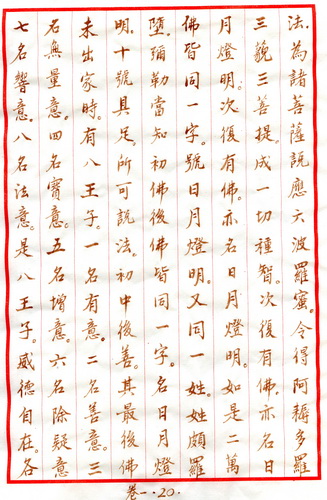 法。為諸菩薩說應六波羅蜜。令得阿耨多羅
三藐三菩提。成一切種智。次復有佛。亦名日
月燈明。次復有佛。亦名日月燈明。如是二萬
佛皆同一字。號日月燈明。又同一姓。姓頗羅
墮。彌勒當知初佛後佛皆同一字。名日月燈
明。十號具足。所可說法。初中後善。其最後佛
未出家時。有八王子。一名有意。二名善意。三
名無量意。四名寶意。五名增意。六名除疑意
七名響意。八名法意。是八王子。威德自在。各
卷一·20·